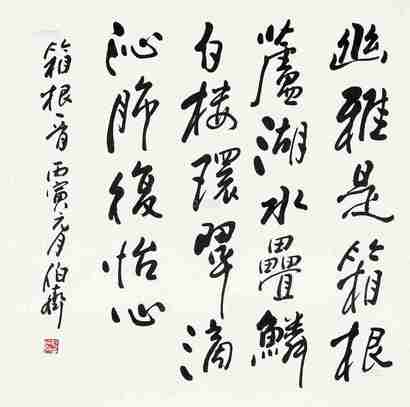 幽雅是箱根
蘆湖水疊鱗
白樓環翠滴
沁脾復怡心
箱根一首 丙寅元月 伯衡